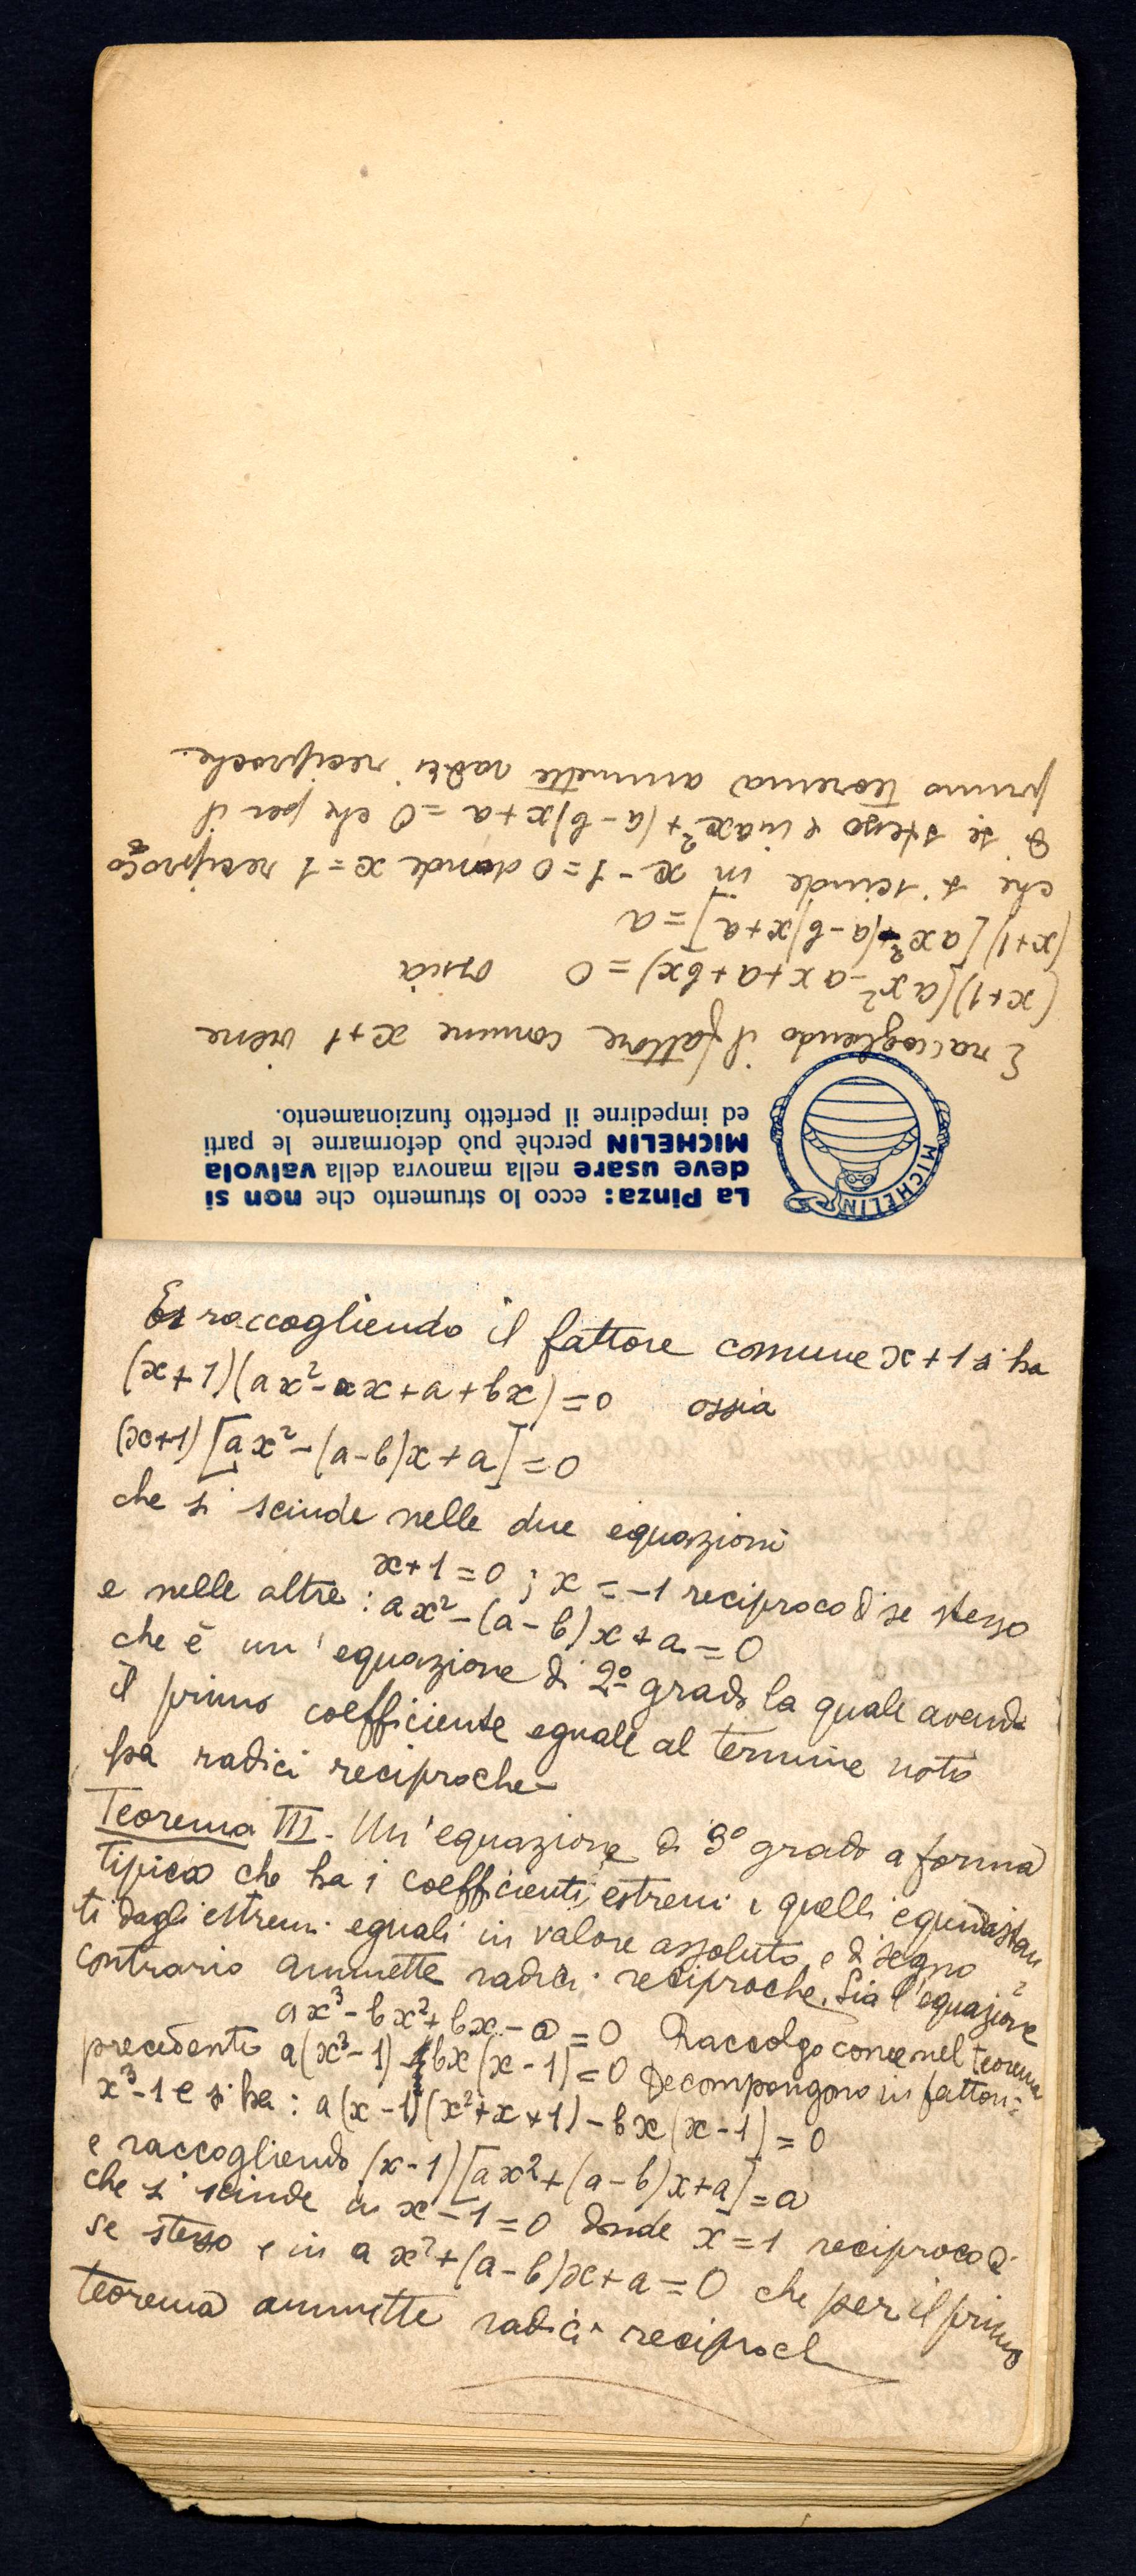 La Pinza: ecco lo strumento che non si
deve usare nella manovra della valvola
MICHELIN perchè può deformarne le parti
ed impedirne il perfetto funzionamento.
MICHELIN
E raccogliendo il fattore comune x+1 viene
(x+1)(ax²-ax+a+bx)=0 ossia
(x+1)[ax²+(a-b)x+a]=a
che si scinde in x-1=0 donde x=1 reciproco
di se stesso e in ax²+(a-b)x+a=0 che per il
primo teorema ammette radici reciproche.
E raccogliendo il fattore comune x+1 si ha
(x+1)(ax²-ax+a+bx)=0 ossia
(x+1)[ax²-(a-b)x+a]=0
che si scinde nelle due equazioni
x+1=0; x=-1 reciproco di se stesso
e nelle altre: ax²-(a-b)x+a=0
che è un'equazione di 2º grado la quale avendo
il primo coefficiente eguale al termine noto
ha radici reciproche-
Teorema III. Un'equazione di 3º grado a forma
tipica che ha i coefficienti estremi e quelli equidistan
ti dagli estremi eguali in valore assoluto e di segno
contrario ammette radici reciproche. Sia l'equazione
ax³-bx²+bx-a=0 Raccolgo come nel teorema
precedente a(x³-1)-bx(x-1)=0 Decompongono in fattori
x³-1 e si ha: a(x-1)(x²+x+1)-bx(x-1)=0
e raccogliendo (x-1)[ax²+(a-b)x+a]=a
che si scinde in x-1=0 donde x=1 reciproco di
se stesso e in ax²+(a-b)x+a=0 che per il primo
teorema ammette radici reciproch